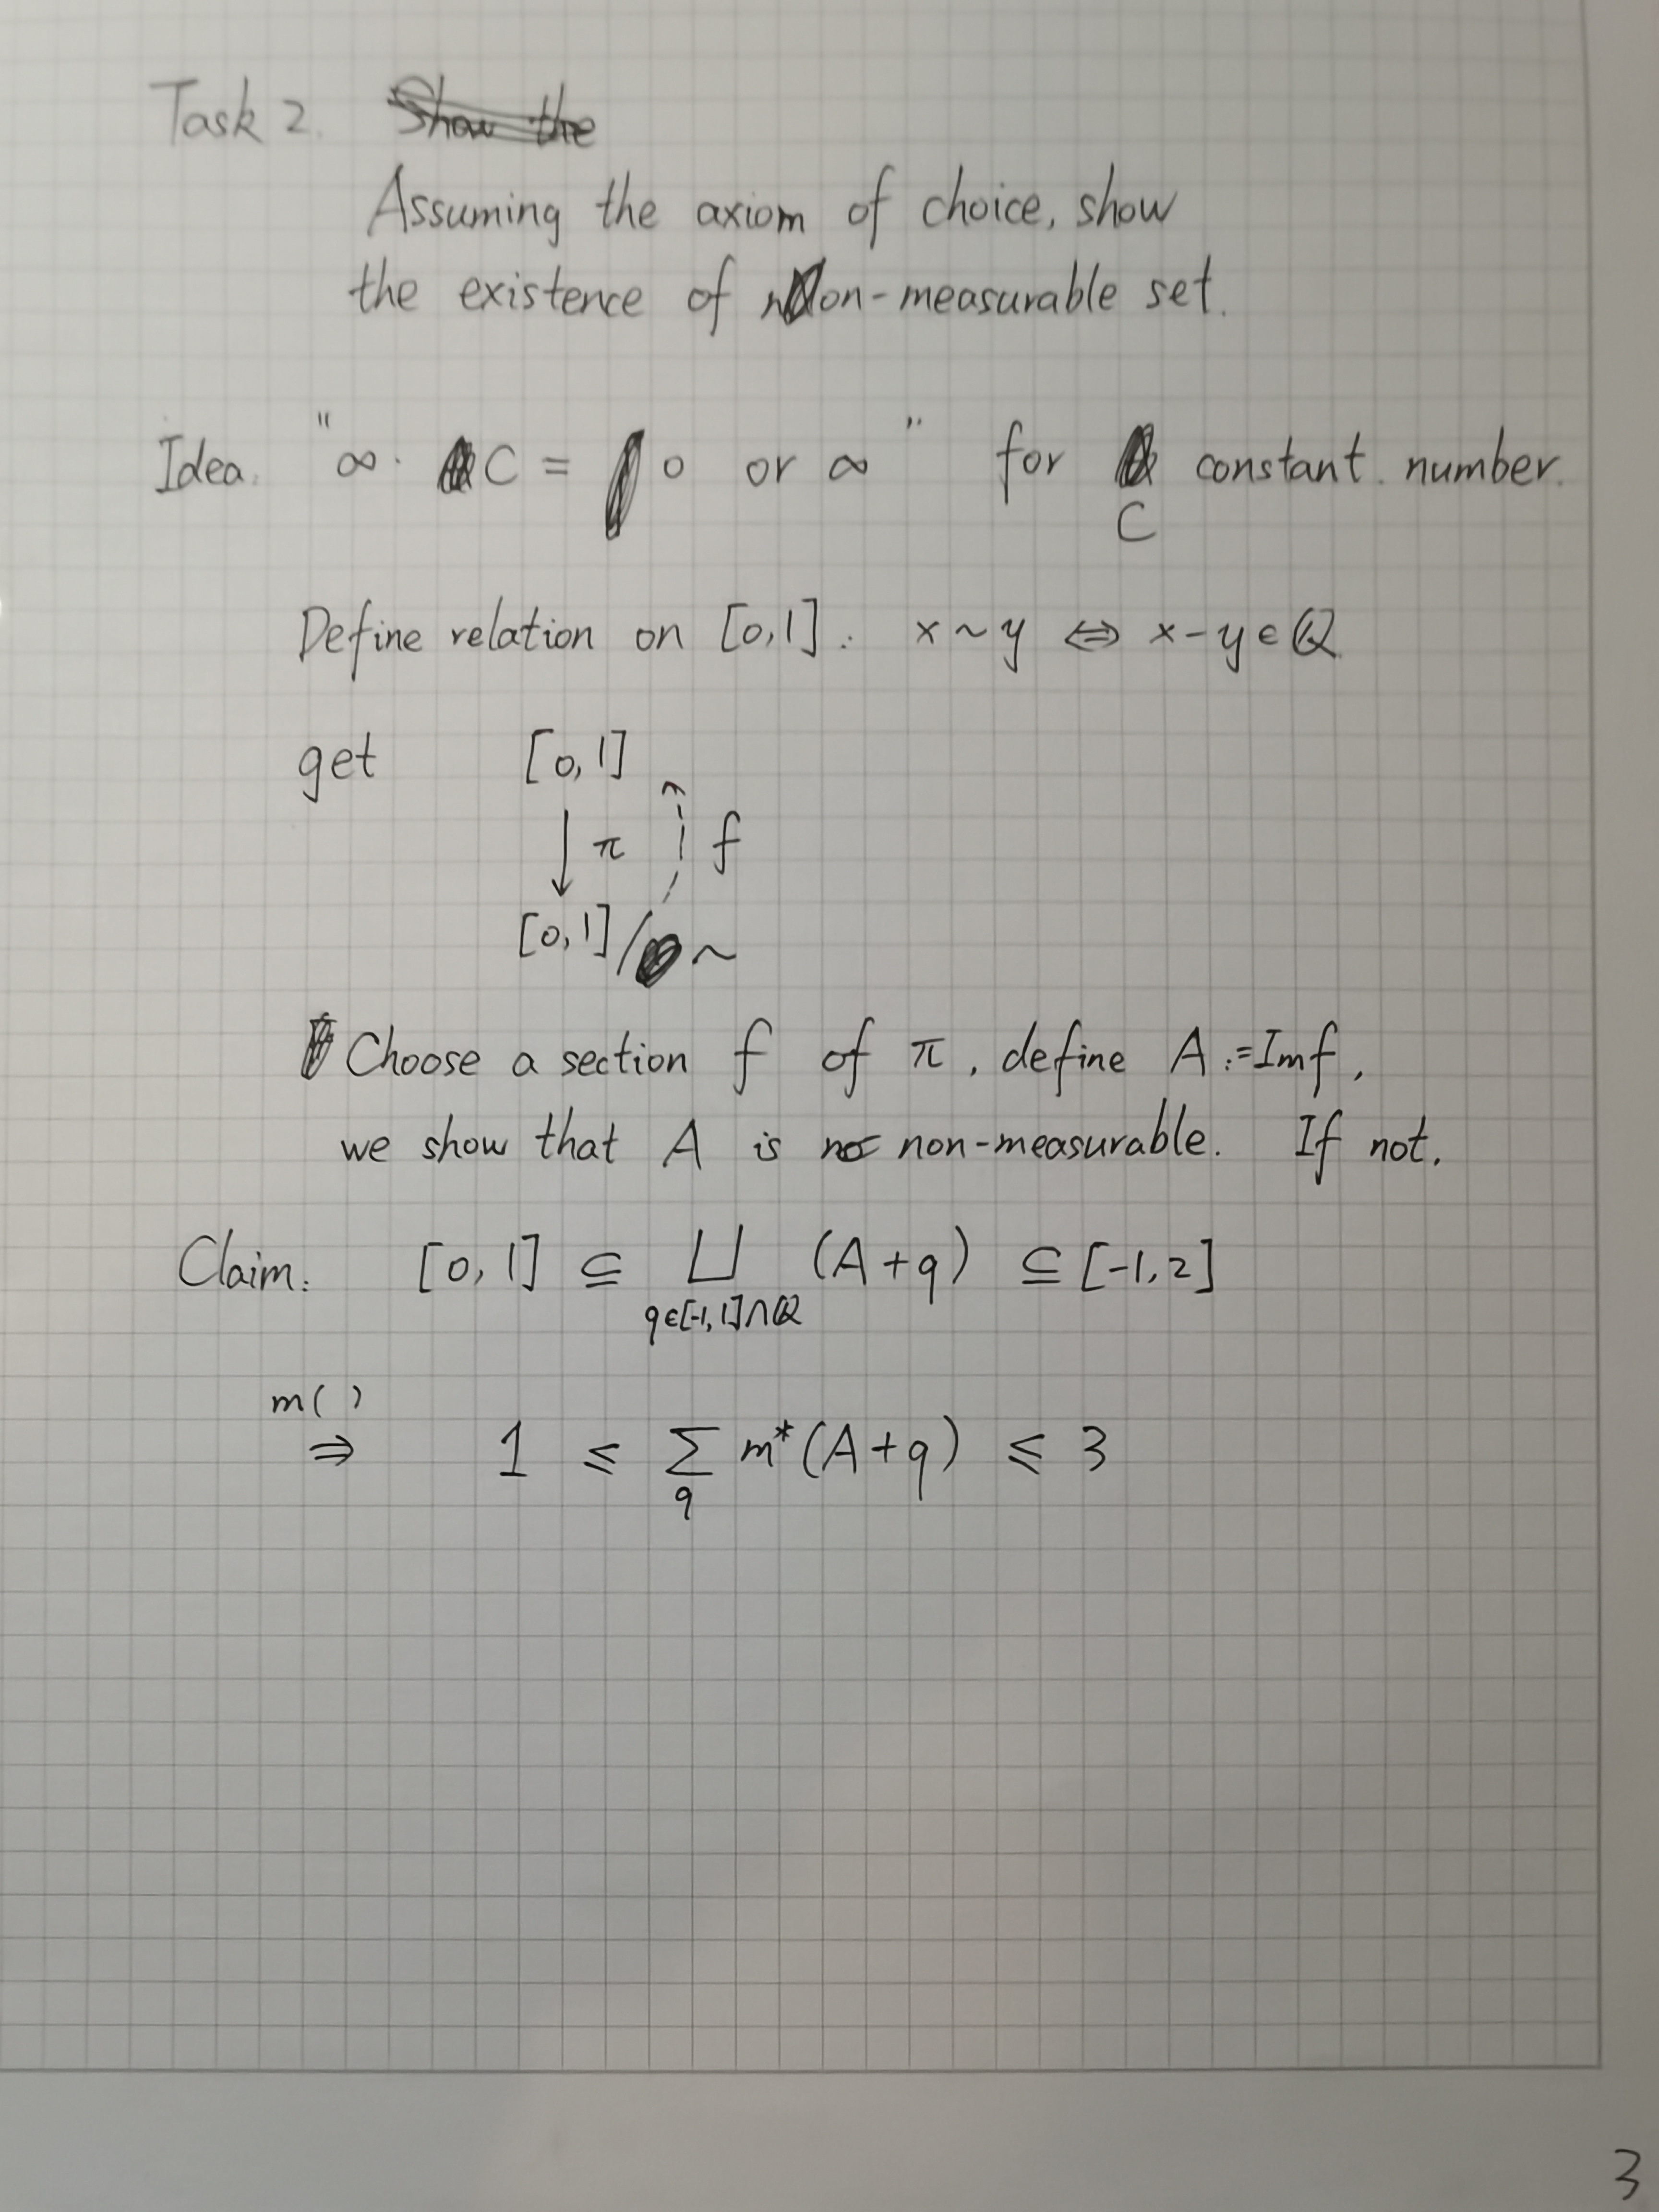 Task 2.
Assuming the axiom of choice, show
the existence of non-measurable set.
Idea. "∞· C = 0 or ∞" for constant number.
C
Define relation on [0,1]: x ~ y ⇔ x-y ∈ ℚ.
get [0,1]
↓ π f
[0,1]/~
Choose a section f of π, define A := Im f,
we show that A is non-measurable. If not,
Claim: [0,1] ⊆ ⊔ (A+q) ⊆ [-1,2]
q∈[-1,1]∩ℚ
m( )
⇒ 1 ≤ Σ m*(A+q) ≤ 3
q
3